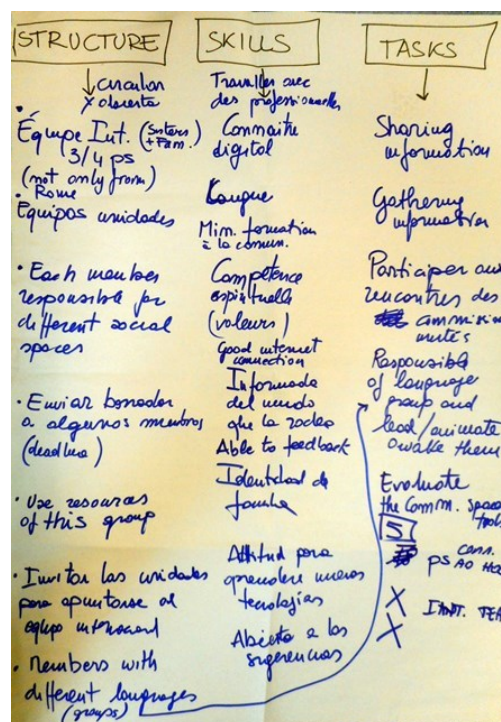 STRUCTURE
circular
abierta
Équipe Int. (Sisters
+ Fam.)
3/4 ps
(not only from)
Rome
Equipos unidades
• Each member
responsible for
different social
spaces
• Enviar borrador
a algunos miembros
(deadline)
• Use resources
of this group
• Invitar las unidades
para apuntarse al
equipo internacional
• Members with
different languages
(groups)
SKILLS
Travailler avec
des professionnelles
Connaitre
digital
Langue
Min. formation
à la commun.
Compétence
espirituelle
(valeurs)
Good internet
connection
Informada
del mundo
que la rodea
Able to feedback
Identidad de
familia
Attitud para
aprendere nuevas
tecnologías
Abierta a las
sugerencias
TASKS
Sharing
information
Gathering
information
Participer aux
rencontres des
Responsible
of language
group and
lead/animate
awake them
Evaluate
the Comm. space
tools
5
ps
X
X